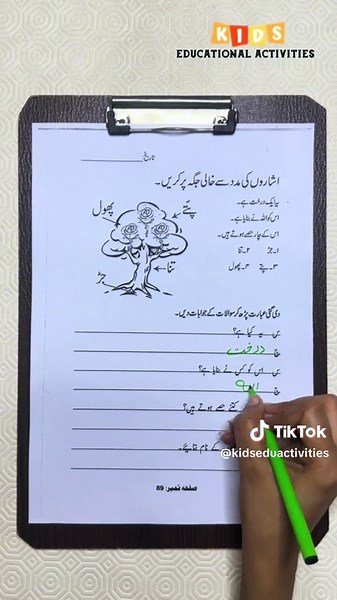 KIDS
EDUCATIONAL ACTIVITIES
تاریخ:
اشاروں کی مدد سے خالی جگہ پر کریں۔
پھول
پتے
یہ ایک درخت ہے۔
اس کو اللہ نے بنایا ہے۔
اس کے چار حصے ہوتے ہیں۔
۱۔ جڑ ۲۔ تنا
۳۔ پتے ۴۔ پھول
تنا
جڑ
دی گئی عبارت پڑھ کر سوالات کے جوابات دیں۔
س یہ کیا ہے؟
ج درخت
س اس کو کس نے بنایا ہے؟
ج اللہ
کتنے حصے ہوتے ہیں؟
کے نام بتائیے۔
صفحہ نمبر: 89
TikTok
@kidseduactivities